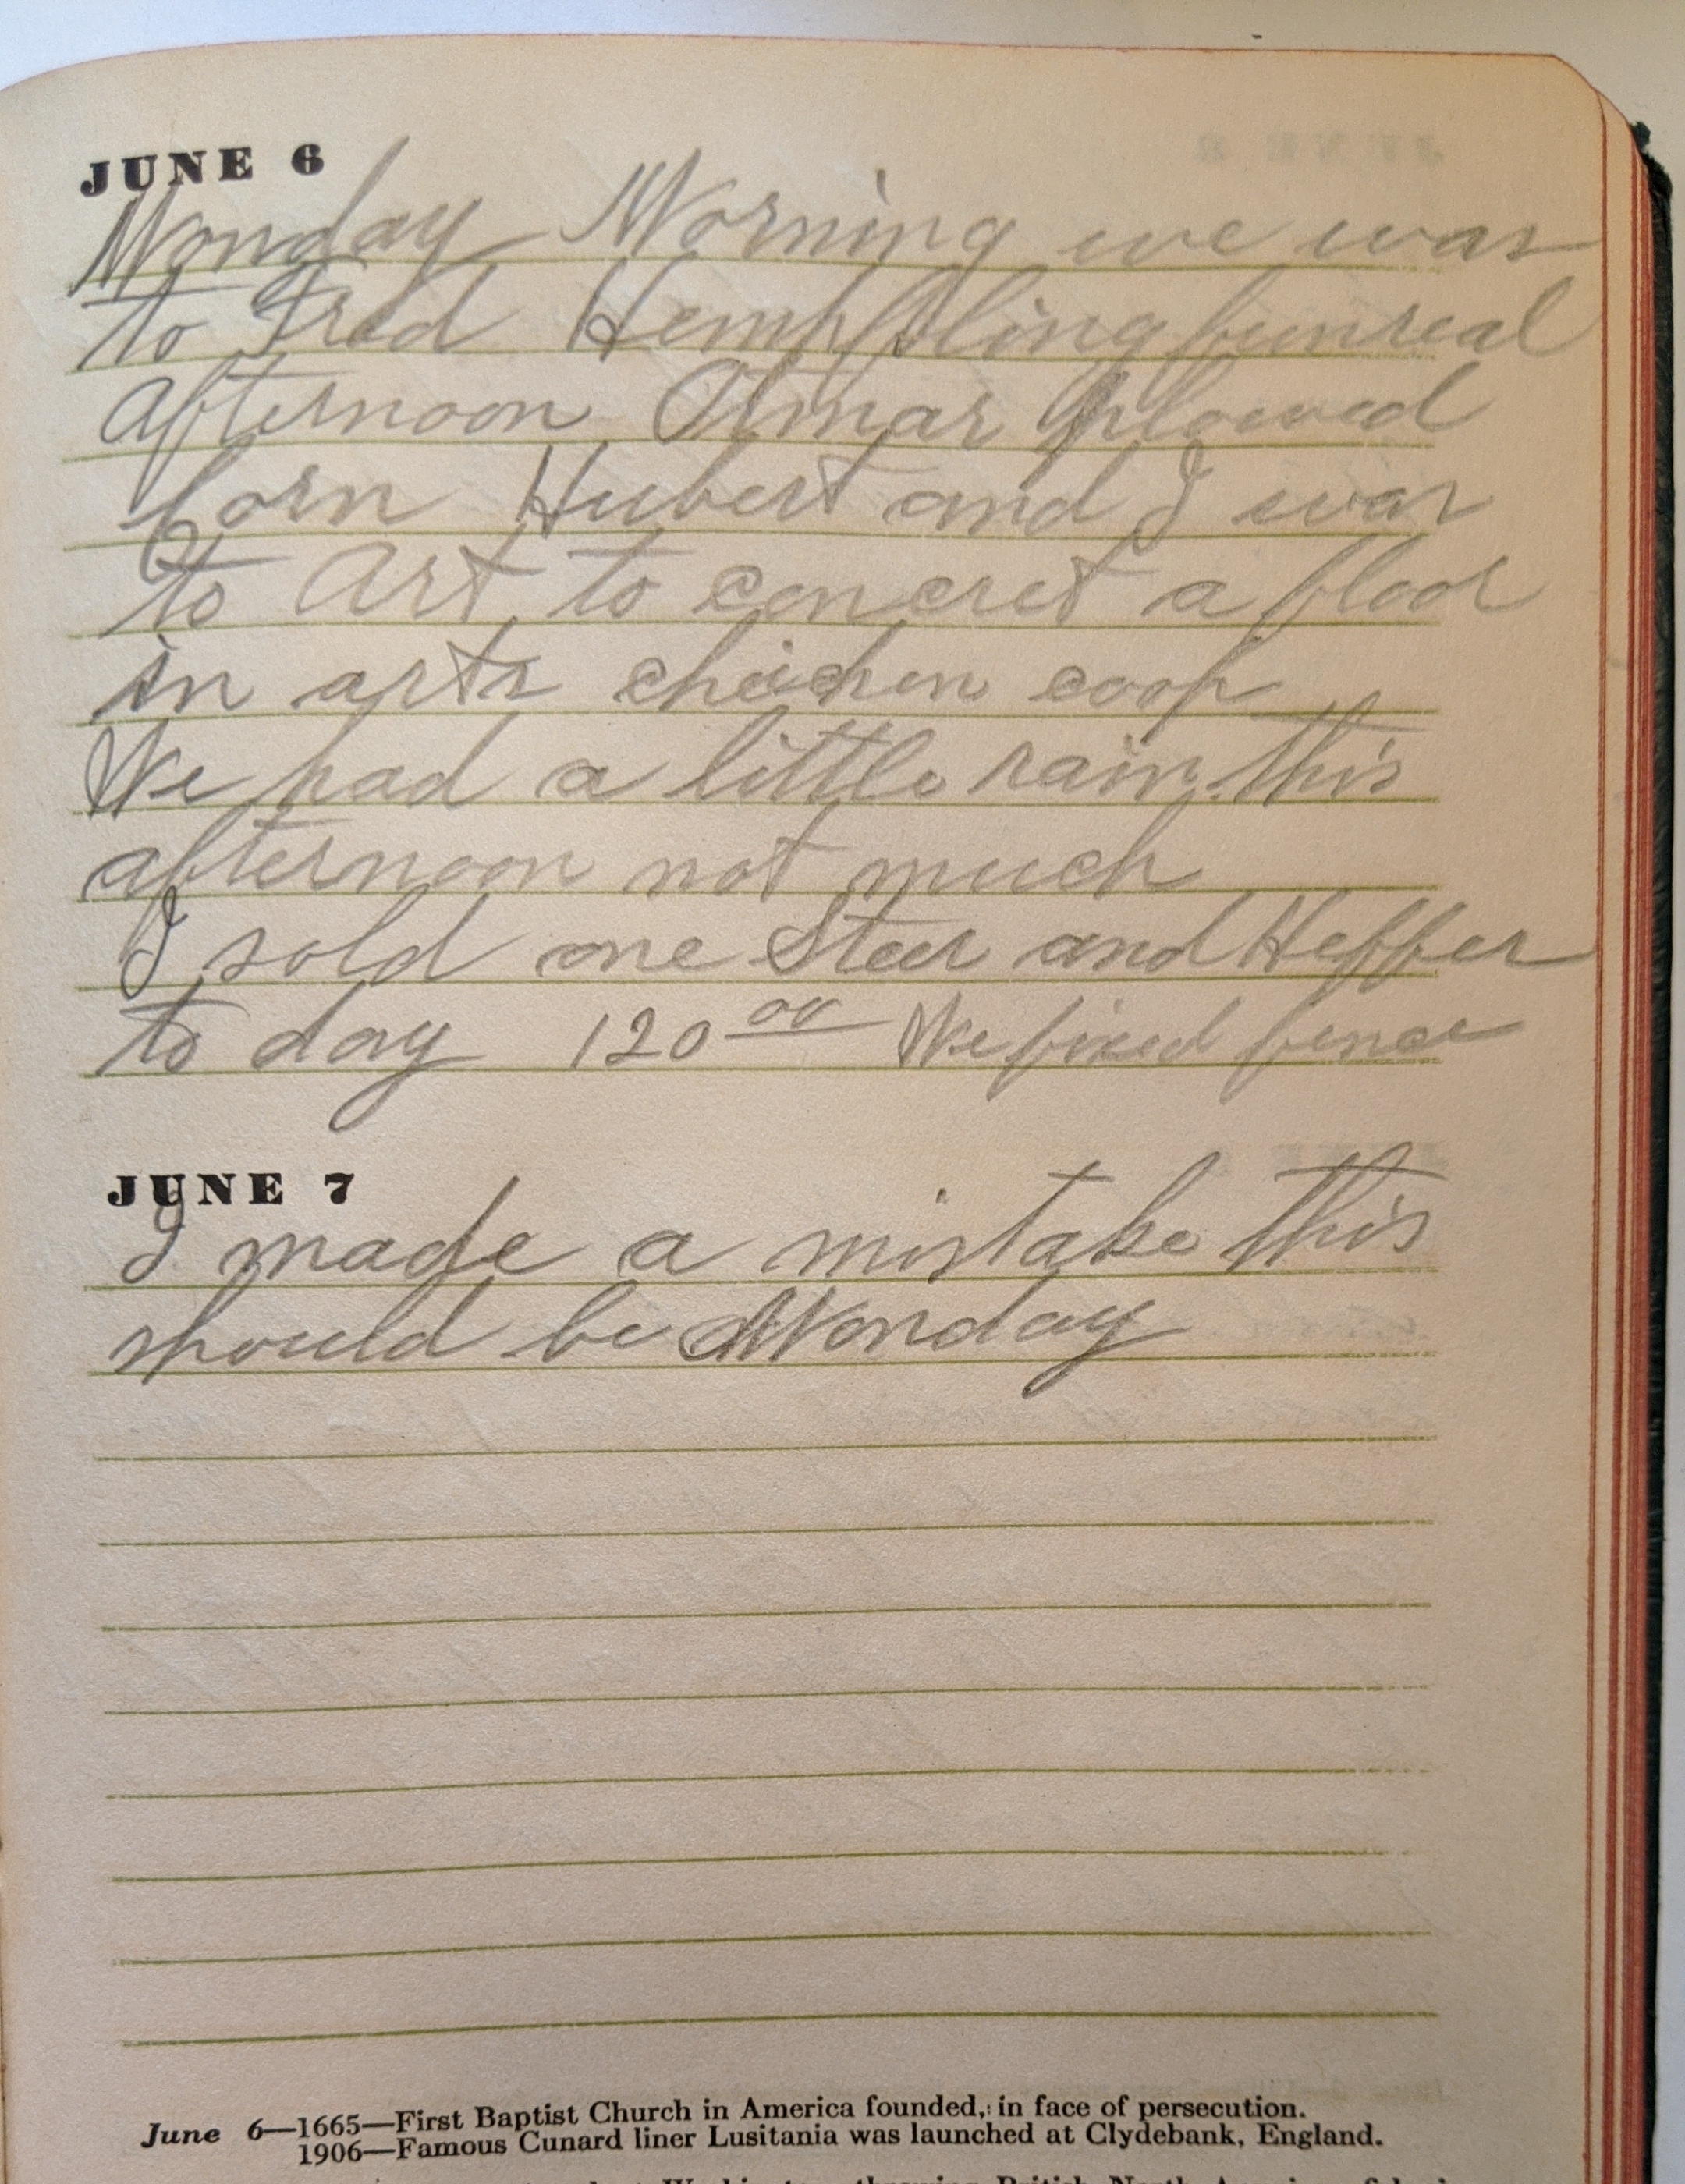 JUNE 6
Monday Morning we was
to Fred Hempfling funreal
afternoon Otmar plowed
Corn Hubert and I was
to Art to concret a floor
in arts chicken coop
We had a little rain this
afternoon not much
I sold one Steer and Heffer
to day 120 00 We fixed fence
JUNE 7
I made a mistake this
should be Monday
June 6—1665—First Baptist Church in America founded, in face of persecution.
1906—Famous Cunard liner Lusitania was launched at Clydebank, England.